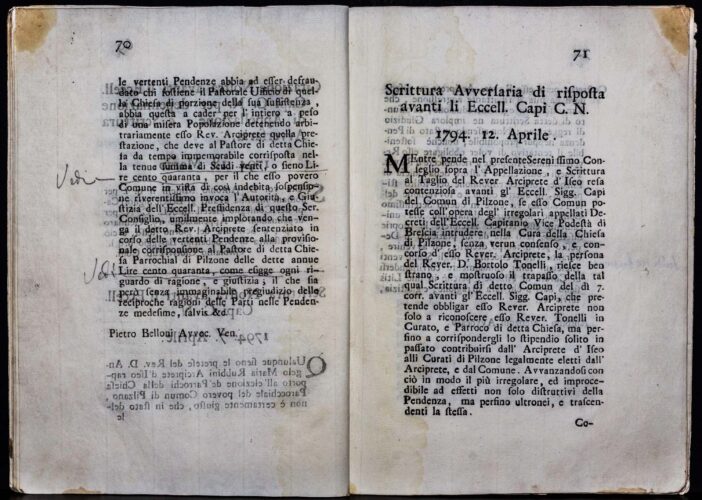 70
le vertenti Pendenze abbia ad esser defrau-
dato chi sostiene il Pastorale Ufficio di quel-
la Chiesa di porzione della sua sussistenza,
abbia questa a cader per l'intiero a peso
di una misera Popolazione detenendo arbi-
trariamente esso Rev. Arciprete quella pre-
stazione, che deve al Pastore di detta Chie-
sa da tempo immemorabile corrisposta nel-
la tenue summa di Scudi venti, o sieno Li-
re cento quaranta, per il che esso povero
Comune in vista di così indebita sospensio-
ne riverentissimo invoca l'Autorità, e Giu-
stizia dell'Eccell. Pressidenza di questo Ser.
Consiglio, umilmente implorando che ven-
ga il detto Rev. Arciprete sentenziato in
corso delle vertenti Pendenze alla provisio-
nale corrisponsione al Pastore di detta Chie-
sa Parrochial di Pilzone delle dette annue
Lire cento quaranta, come esigge ogni ri-
guardo di ragione, e giustizia; il che sia
però senza immaginabile pregiudizio delle
reciproche ragioni delle Parti nelle Penden-
ze medesime, salvis &c.
Pietro Belloni Avvoc. Ven.
71
Scrittura Avversaria di risposta
avanti li Eccell. Capi C. N.
1794. 12. Aprile.
MEntre pende nel presente Serenissimo Con-
seglio sopra l'Appellazione, e Scrittura
al Taglio del Rever Arciprete d'Iseo resa
contenziosa avanti gl'Eccell. Sigg. Capi
del Comun di Pilzone, se esso Comun po-
tesse coll'opera degl'irregolari appellati De-
creti dell'Eccell. Capitanio Vice Podestà di
Brescia intrudere nella Cura della Chiesa
di Pilzone, senza verun consenso, e con-
corso d'esso Rever. Arciprete, la persona
del Rever. D. Bortolo Tonelli, riesce ben
strano, e mostruoso il trapasso della tal
qual Scrittura di detto Comun del dì 7.
corr. avanti gl'Eccell. Sigg. Capi, che pre-
tende obbligar esso Rever. Arciprete non
solo a riconoscere esso Rever. Tonelli in
Curato, e Parroco di detta Chiesa, ma per-
fino a corrispondergli lo stipendio solito in
passato contribuirsi dall'Arciprete d'Iseo
alli Curati di Pilzone legalmente eletti dall'
Arciprete, e dal Comune. Avvanzandosi con
ciò in modo il più irregolare, ed improce-
dibile ad effetti non solo distruttivi della
Pendenza, ma perfino ultronei, e trascen-
denti la stessa.
Co-